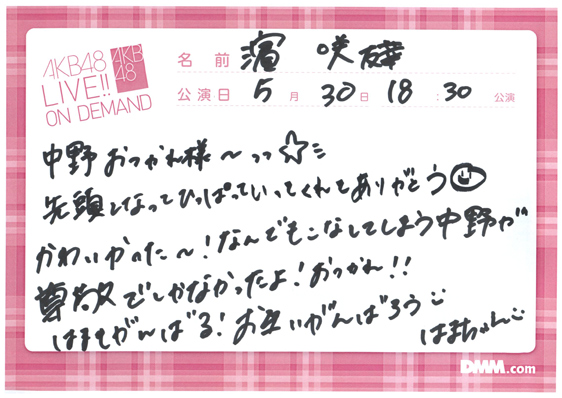 AKB48
LIVE!!
ON DEMAND
AKB
48
名前 濵 咲嬅
公演日 5月30日 18:30 公演
中野おつかれ様〜っっ☆ミ
先頭となってひっぱっていってくれてありがとう
かわいかった〜!なんでもこなしてしまう中野が
尊敬でしかなかったよ!おつかれ!!
はまもがんばる!お互いがんばろう
はまちゃん
DMM.com